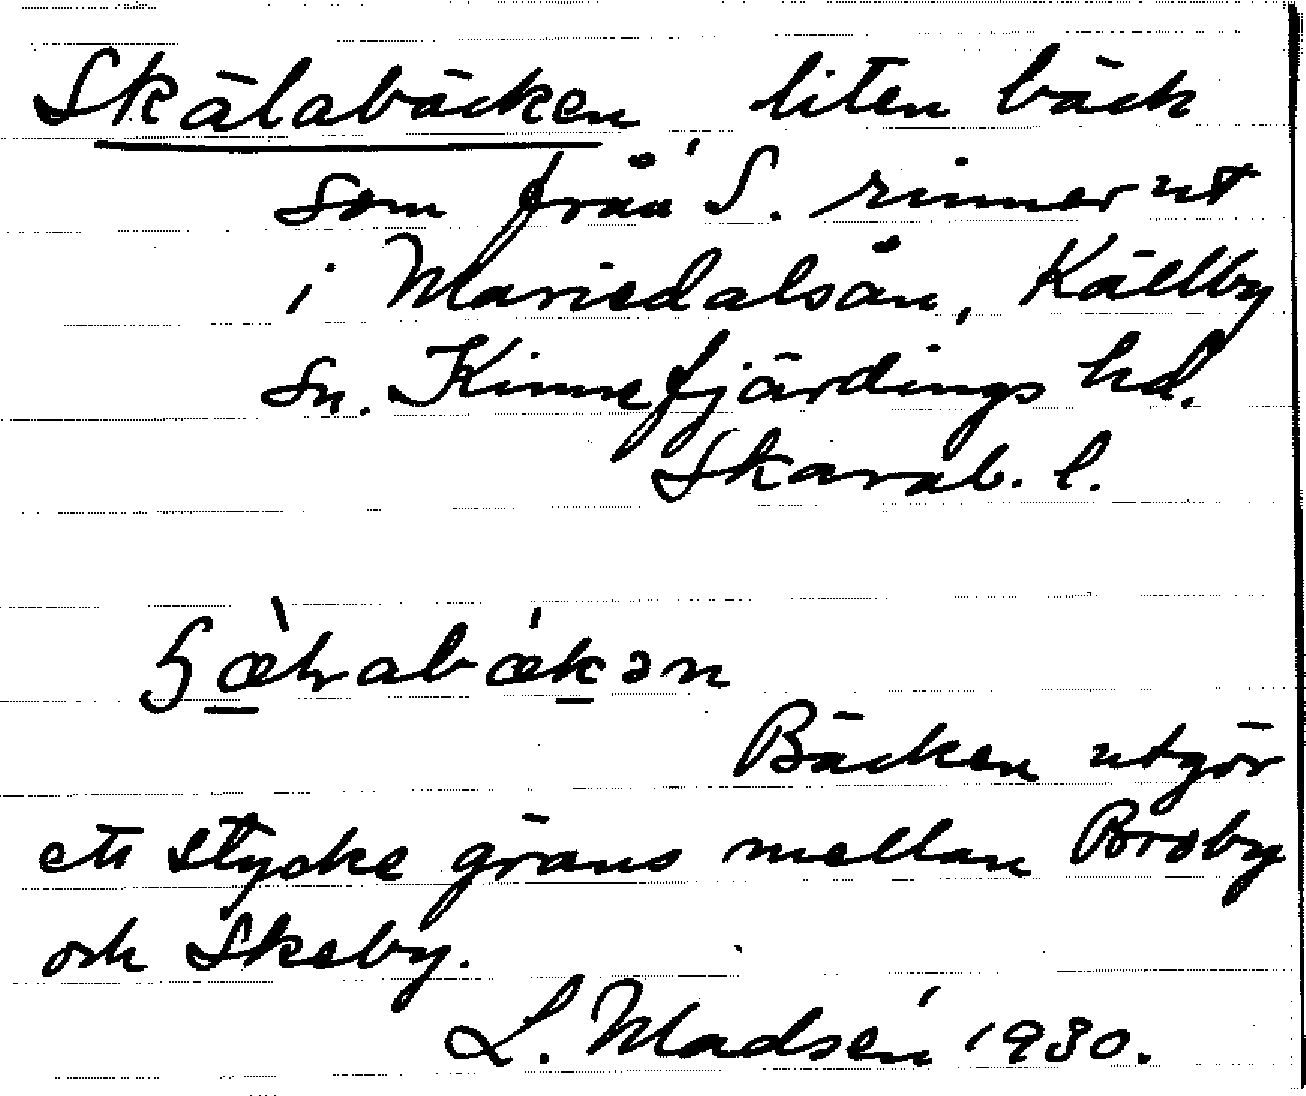 Skälabäcken liten bäck
som från S. rinner ut
i Mariedalsån, Källby
sn. Kinnefjärdings hd.
Skarab. l.
Bäcken utgör
ett stycke gräns mellan Broby
och Skeby.
L. Madsén 1930.